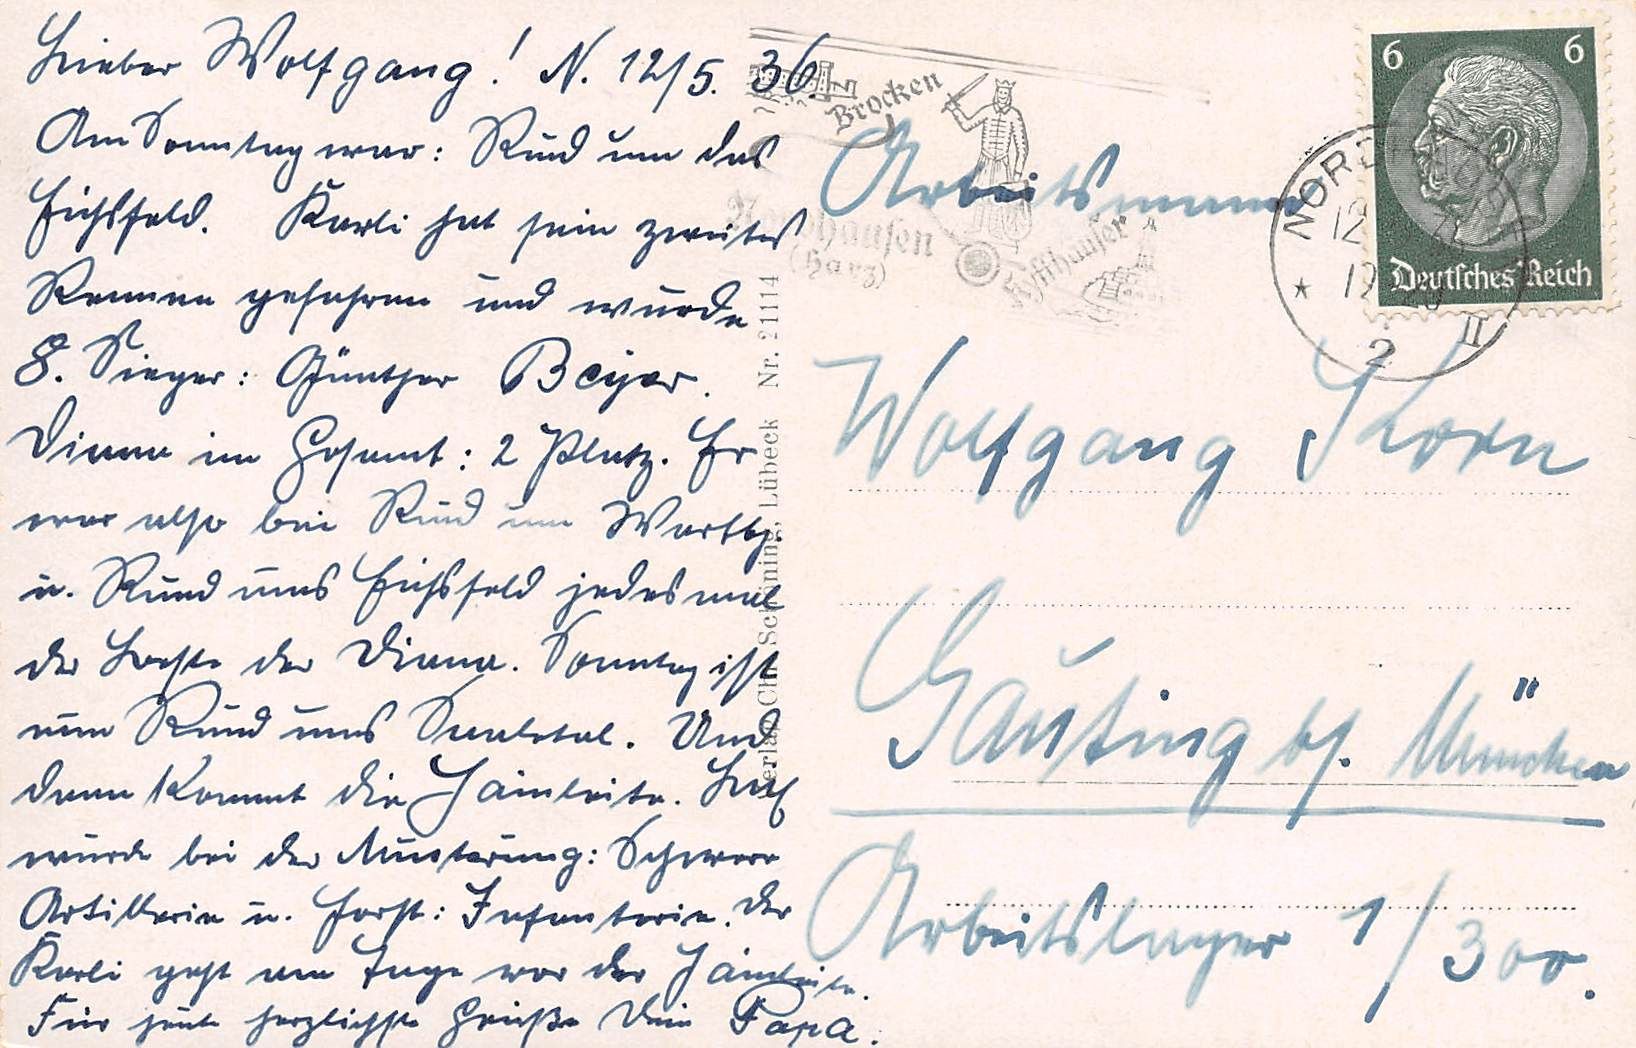 Lieber Wolfgang! N. 12/5. 36.
Am Sonntag war: Rund um das
Eichsfeld. Karli hat sein zweites
Rennen gefahren und wurde
8. Sieger: Günther Beyer.
Diana im Gesamt: 2 Platz. Er
war also bei Rund um Wartbg.
u. Rund ums Eichsfeld jedesmal
der beste der Diana. Sonntag ist
nun Rund ums Saaletal. Und
dann kommt die Hainleite.
wurde bei der Musterung: Schwere
Artillerie u. Horst: Infanterie. Der
Karli geht am Tage vor der Hainleite.
Für heute herzlichste Grüße Dein Papa.
Verlag Chr. Schöning, Lübeck Nr. 21114
Brocken
Nordhausen
(Harz)
Kyffhäuser
NORDHAUSEN
12
2
II
6 6
Deutsches Reich
Arbeitsmann
Wolfgang Korn
Gauting bf. München
Arbeitslager 1/300.